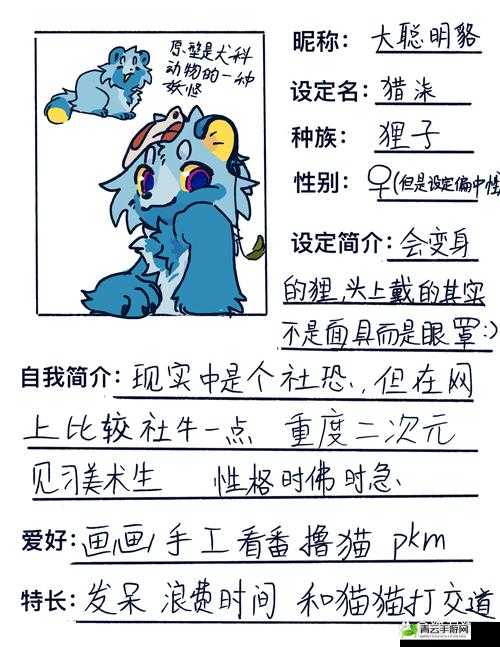 原型是犬科
动物的一种
妖怪
昵称： 大聪明貉
设定名： 猎柒
种族： 狸子
性别： ♀(但是设定偏中性
设定简介： 会变身
的狸,头上戴的其实
不是面具而是眼罩:)
自我简介： 现实中是个社恐,但在网
上比较社牛一点 重度二次元
见习美术生 性格时佛时急
爱好： 画画/手工看番撸猫 pkm
特长： 发呆 浪费时间 和猫猫打交道
青云手游网